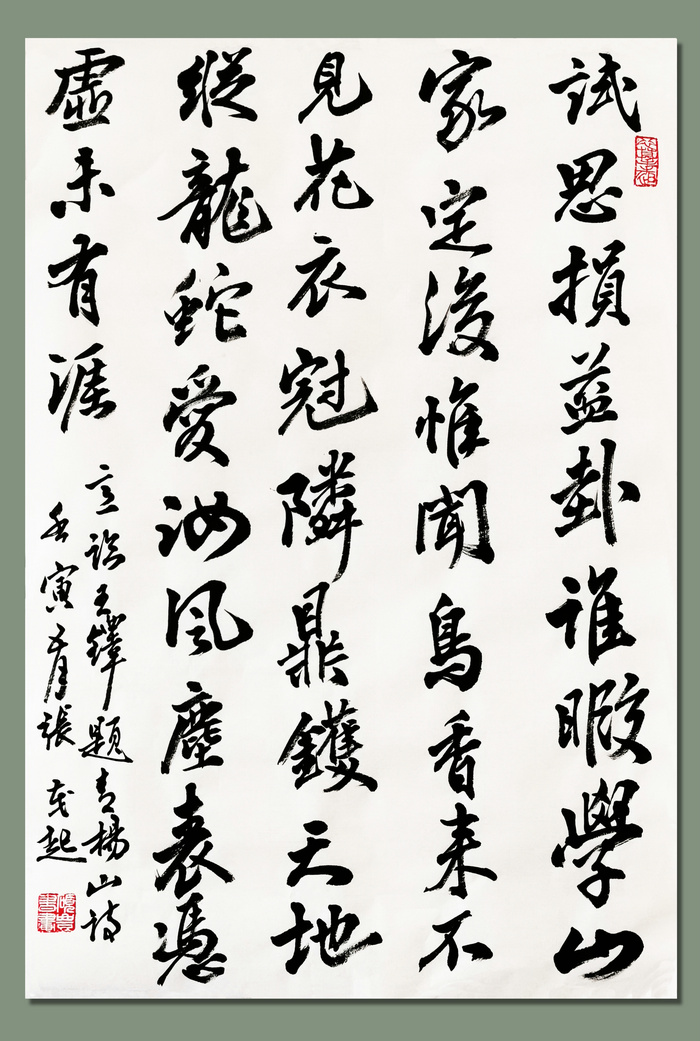 試思損益卦誰暇學山
家定後惟聞鳥香來不
見花衣冠隣鼎鑊天地
縱龍蛇愛汝風塵表憑
虛未有涯
意臨王鐸題青楊山詩
壬寅五月張茂起